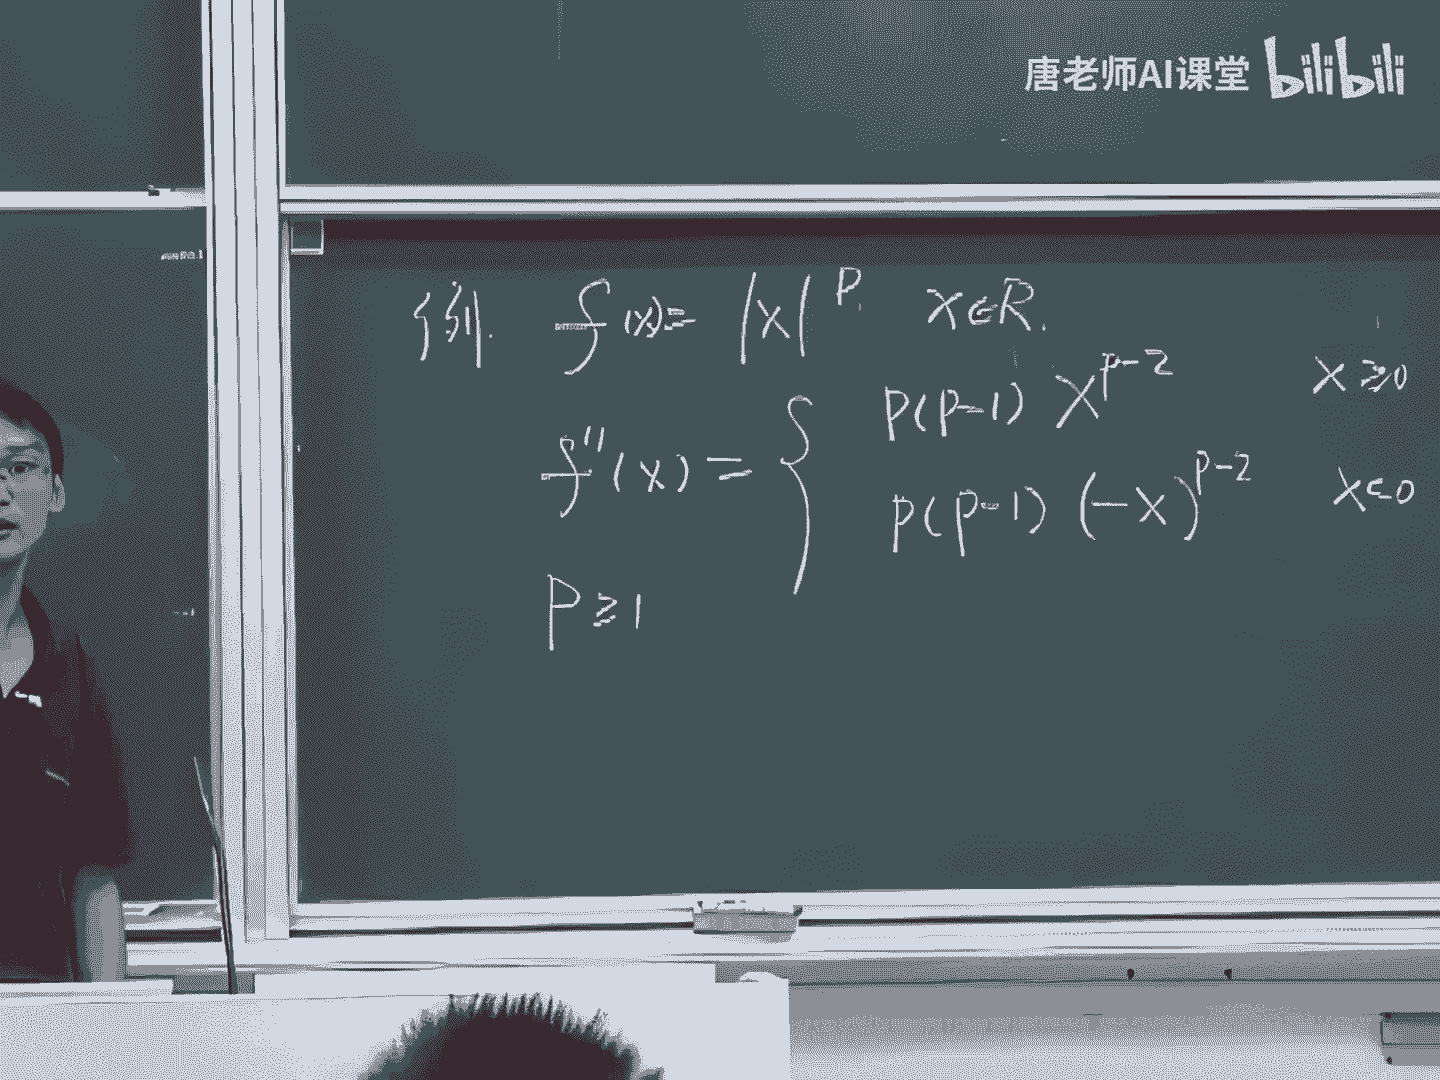 唐老师AI课堂 bilibili
例. f(x)= |x|^p, x∈R.
f''(x) = { p(p-1) x^{p-2} x≥0
p(p-1) (-x)^{p-2} x<0
p≥1